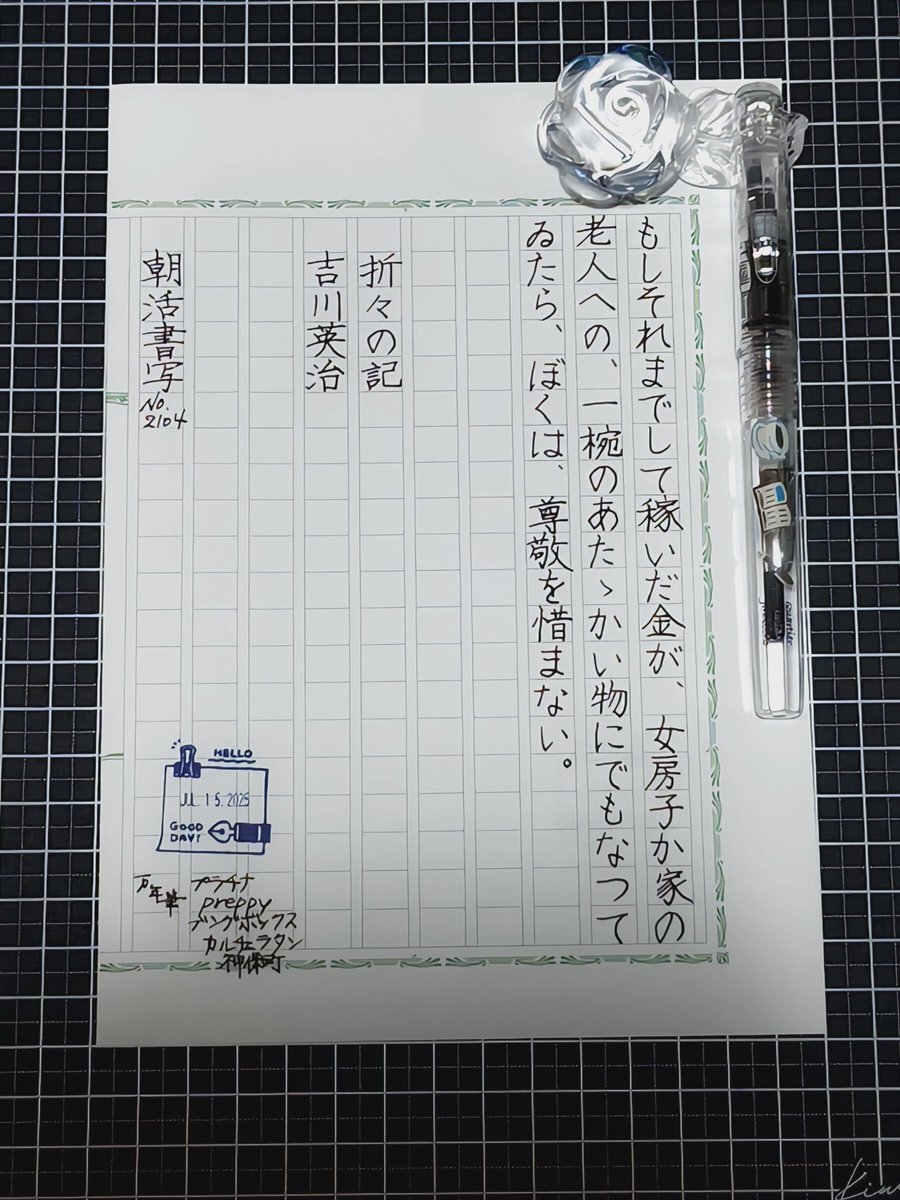 もしそれまでして稼いだ金が、女房子か家の
老人への、一椀のあたゝかい物にでもなつて
ゐたら、ぼくは、尊敬を惜まない。
折々の記
吉川英治
朝活書写
No.
2104
HELLO
JUL 15.2025
GOOD
DAY!
万年筆
プラチナ
preppy
ブングボックス
カルチェラタン
神保町